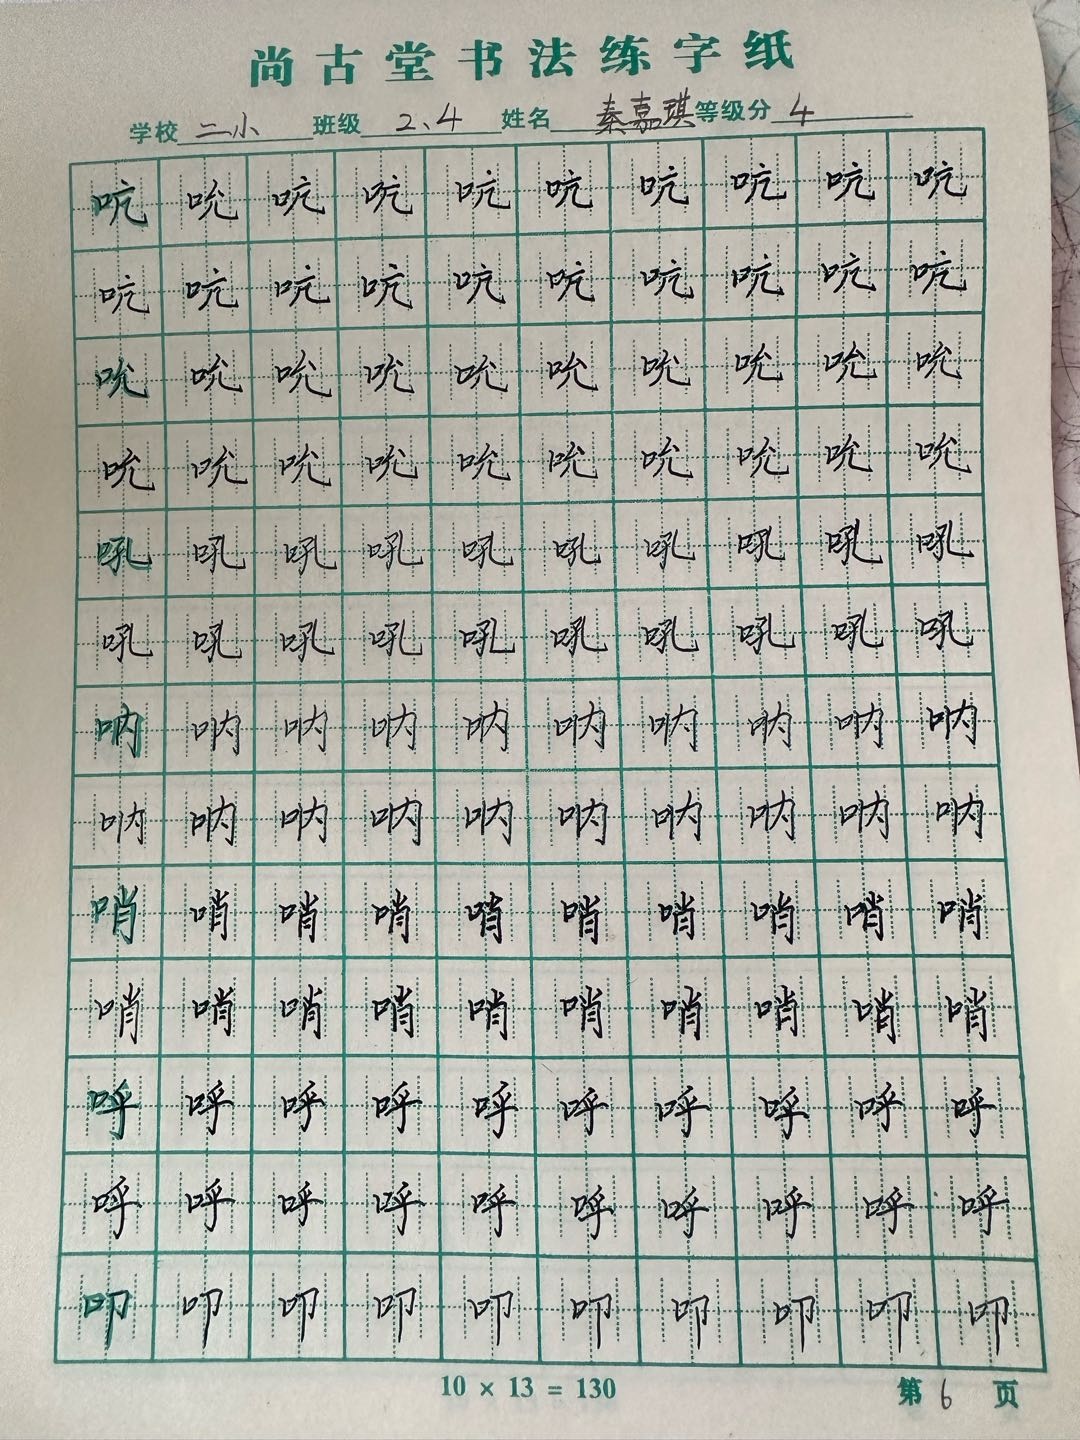 尚古堂书法练字纸
学校 二小 班级 2、4 姓名 秦嘉琪 等级分 4
吭 吮 吭 吭 吭 吭 吭 吭 吭 吭
吭 吭 吭 吭 吭 吭 吭 吭 吭 吭
吮 吮 吮 吮 吮 吮 吮 吮 吮 吮
吮 吮 吮 吮 吮 吮 吮 吮 吮 吮
吼 吼 吼 吼 吼 吼 吼 吼 吼 吼
吼 吼 吼 吼 吼 吼 吼 吼 吼 吼
呐 呐 呐 呐 呐 呐 呐 呐 呐 呐
呐 呐 呐 呐 呐 呐 呐 呐 呐 呐
哨 哨 哨 哨 哨 哨 哨 哨 哨 哨
哨 哨 哨 哨 哨 哨 哨 哨 哨 哨
呼 呼 呼 呼 呼 呼 呼 呼 呼 呼
呼 呼 呼 呼 呼 呼 呼 呼 呼 呼
叩 叩 叩 叩 叩 叩 叩 叩 叩 叩
10 × 13 = 130 第 6 页